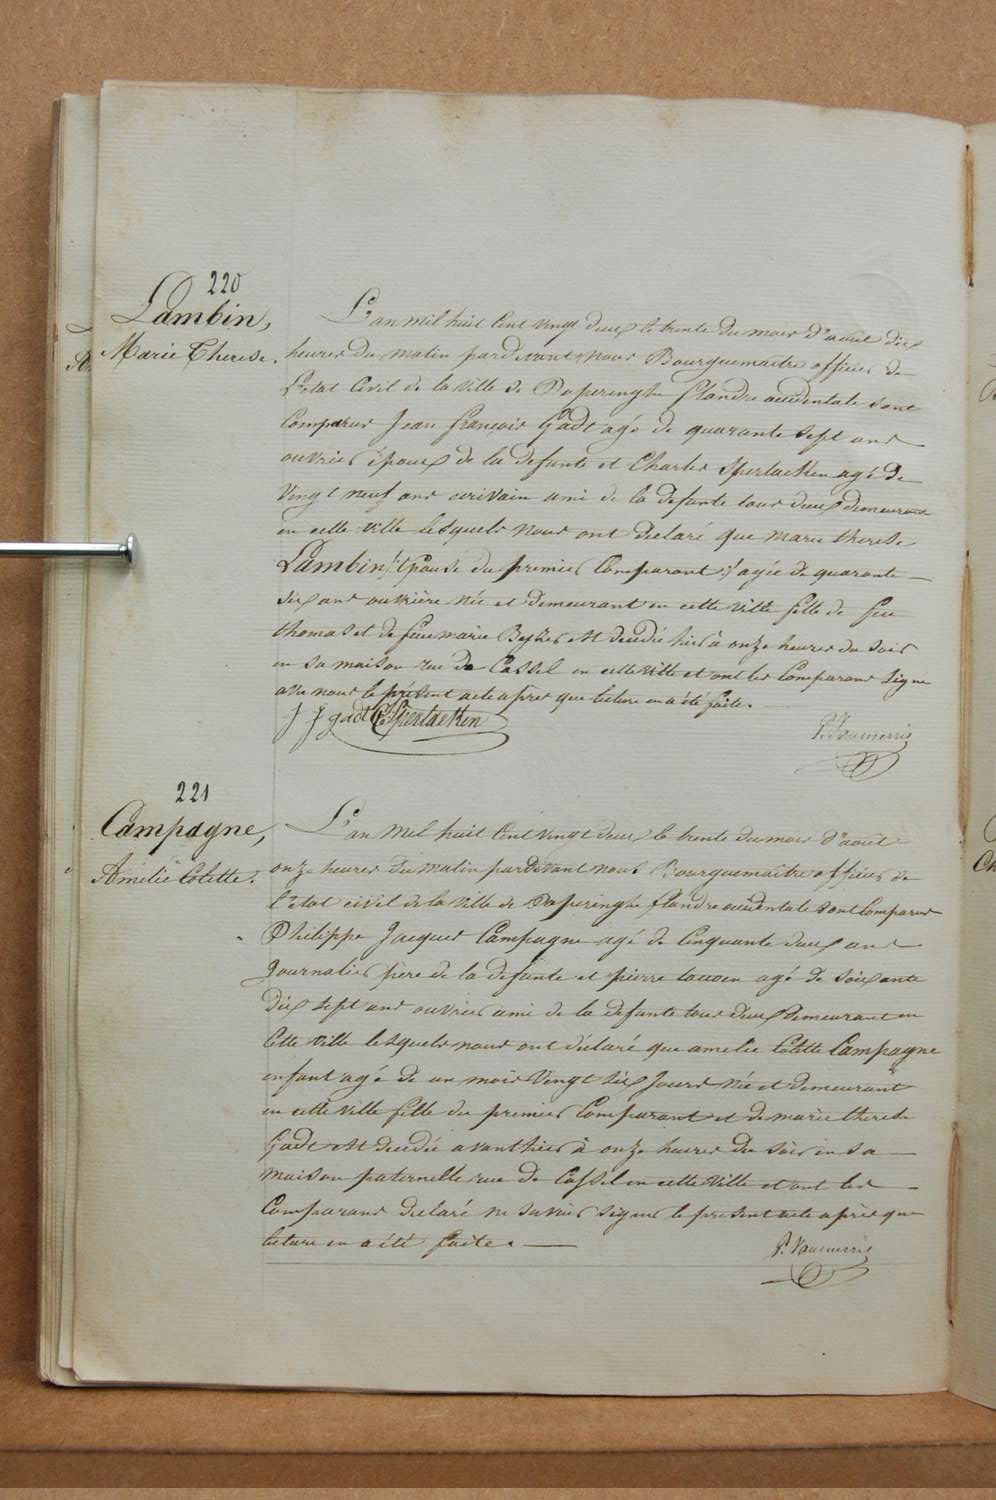 220
Lambin,
Marie Therese.
L'an mil huit cent vingt deux le trente du mois d'aout dix
heures du matin pardevant nous Bourguemaitre officier de
l'etat civil de la ville de Poperinghe flandre occidentale sont
comparus Jean françois Gadt agé de quarante sept ans
ouvrier époux de la defunte et Charles Sperlaeken agé de
vingt neuf ans ecrivain ami de la defunte tous deux demeurans
en cette ville lesquels nous ont déclaré que marie therese
Lambin épouse du premier comparant agée de quarante
six ans ouvrière née et demeurant en cette ville fille de feu
thomas et de feue marie est decedée hier à onze heures du soir
en sa maison rue de Cassel en cette ville et ont les comparans signe
avec nous le présent acte apres que lecture en a été faite.
J J gadt C. Sperlaeken
P. Vanmerris
221
Campagne,
Amelie Colette.
L'an mil huit cent vingt deux le trente du mois d'aout
onze heures du matin pardevant nous Bourguemaitre officier de
l'etat civil de la ville de Poperinghe flandre occidentale sont comparus
Philippe Jacques Campagne agé de cinquante deux ans
Journalier père de la defunte et pierre agé de soixante
dix sept ans ouvrier ami de la defunte tous deux demeurant en
cette ville lesquels nous ont déclaré que amelie Colette Campagne
enfant agé de un mois vingt six jours née et demeurant
en cette ville fille du premier comparant et de marie therese
Gadt est decedée avanthier à onze heures du soir en sa
maison paternelle rue de Cassel en cette ville et ont les
comparans déclaré ne savoir signer le present acte après que
lecture en a été faite.
P. Vanmerris